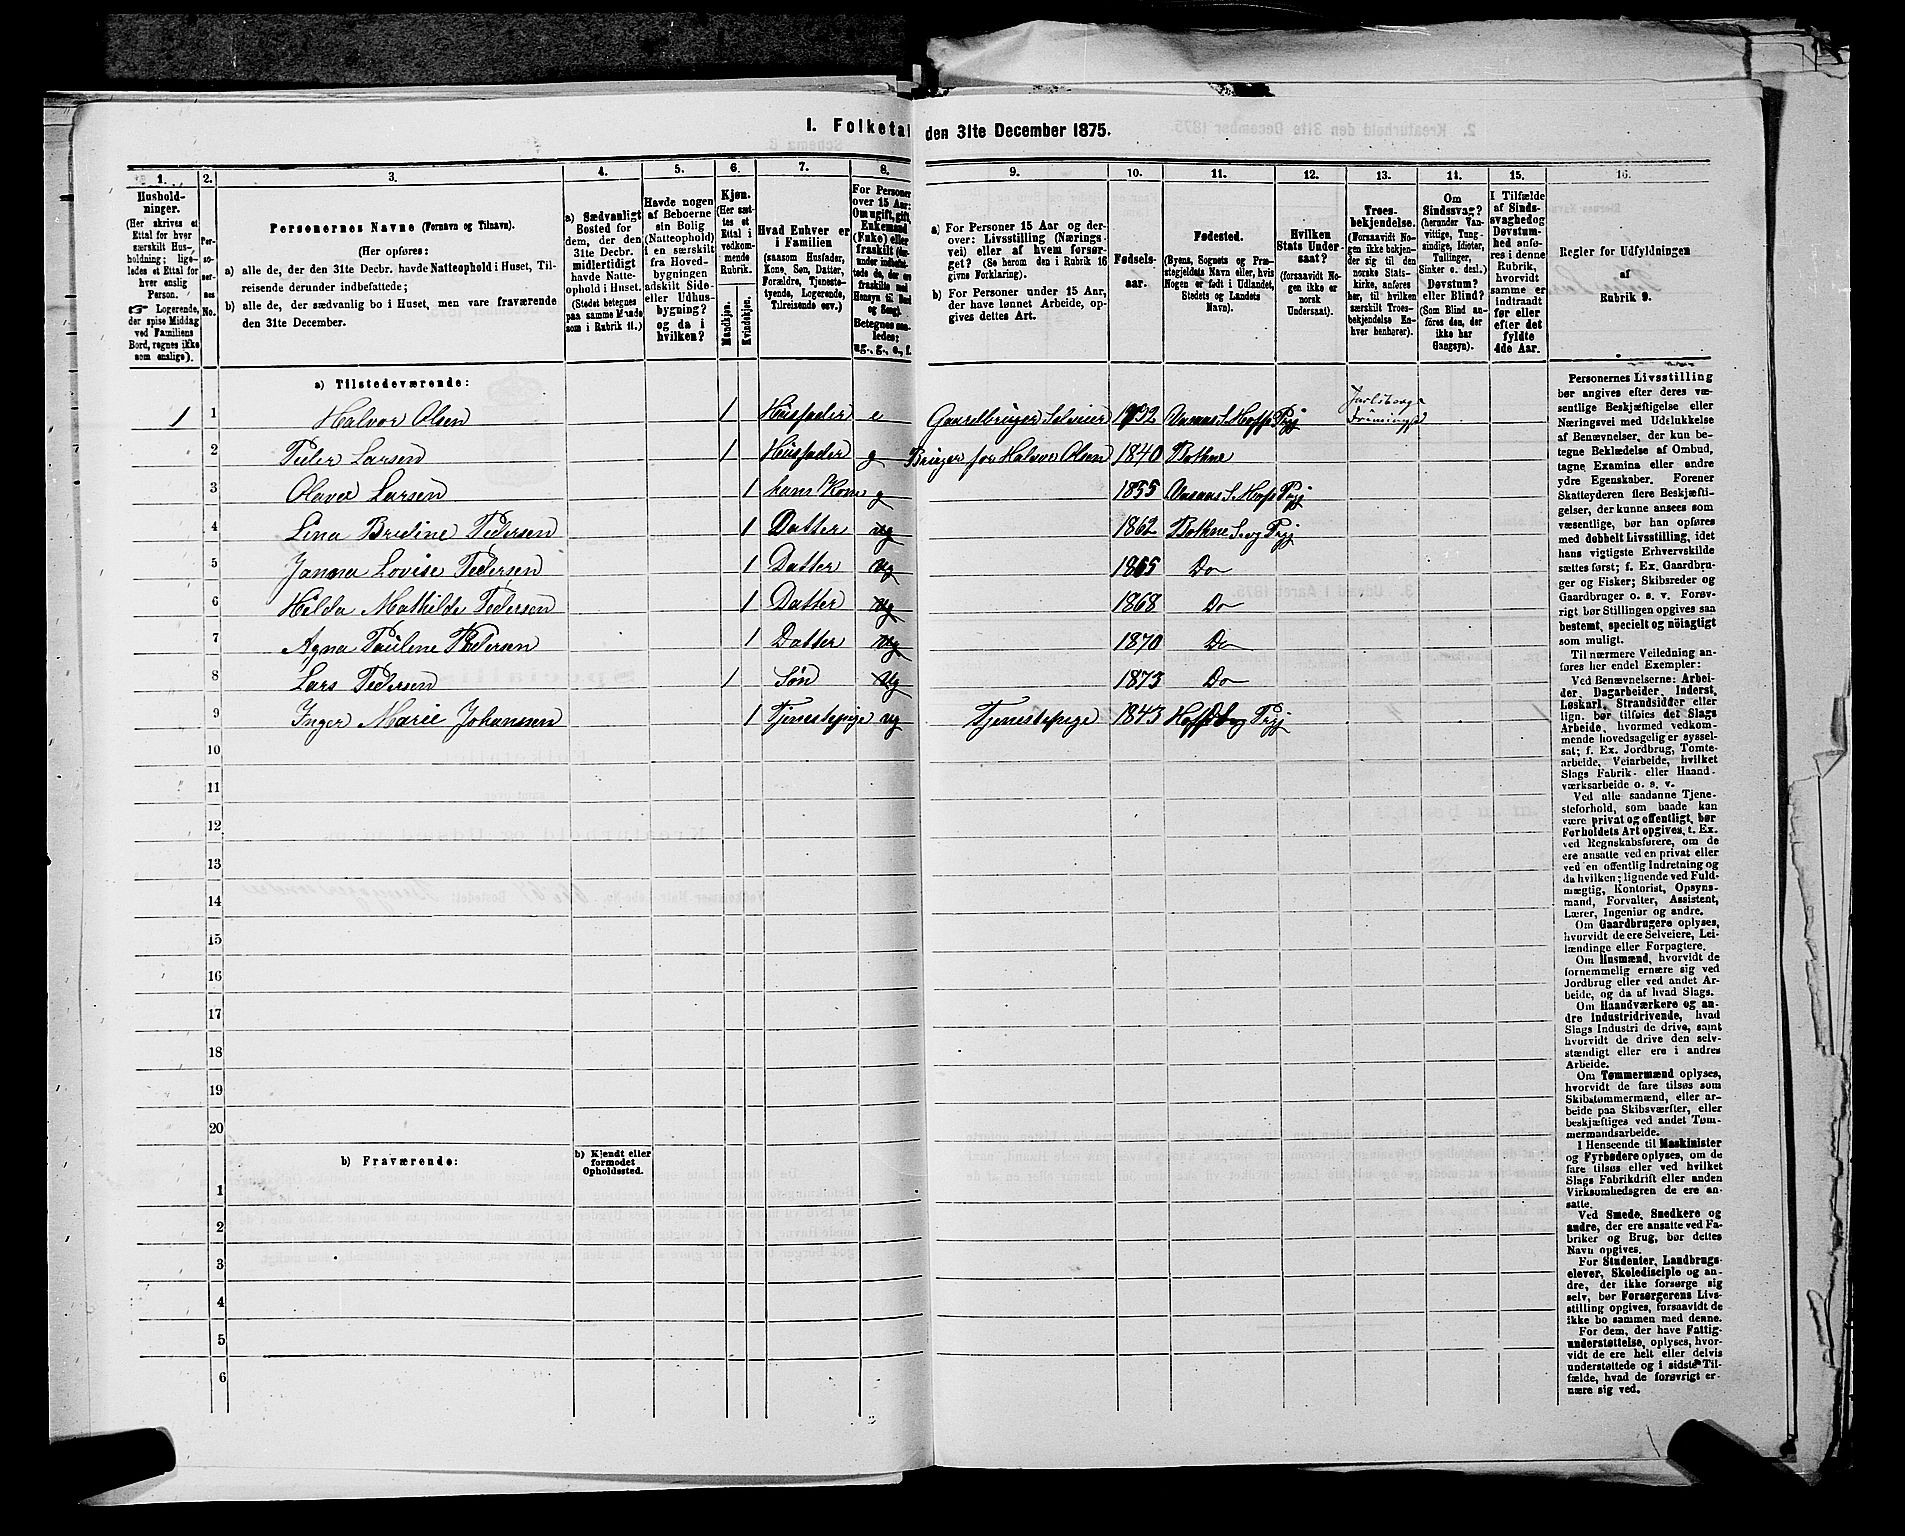 I. Folketal den 31te December 1875.
1. 2. 3. 4. 5. 6. 7. 8. 9. 10. 11. 12. 13. 14. 15. 16.
Husholdninger.
(Her skrives et
Ettal for hver
særskilt Husholdning; ligeledes
et Ettal for
hver enslig
Person.
☞ Logerende,
der spise Middag
ved Familiens
Bord, regnes ikke
som enslige).
Personernes No.
Personernes Navne (Fornavn og Tilnavn).
(Her opføres:
a) alle de, der den 31te Decbr. havde Natteophold i Huset, Tilreisende
derunder indbefattede;
b) alle de, der sædvanlig bo i Huset, men vare fraværende
den 31te December.
a) Sædvanligt
Bosted for
dem, der den
31te Decbr.
midlertidigt
havde Natteophold
i Huset.
(Stedet betegnes
paa samme Maade
som i Rubrik 11.)
Havde nogen
af Beboerne
sin Bolig
(Natteophold)
i en særskilt
fra Hovedbygningen
adskilt Side-
eller Udhusbygning?
og da i
hvilken?
Kjøn.
(Her sættes
et
Ettal i
vedkommende
Rubrik.
Mandkjøn.
Kvindekjøn.
Hvad Enhver er
i Familien
(saasom Husfader,
Kone, Søn, Datter,
Forældre, Tjenestetyende,
Logerende,
Tilreisende osv.)
For Personer
over 15 Aar:
Om ugift, gift,
Enkemand
(Enke) eller
fraskilt
Betegnes saaledes:
ug., g., e., f.
a) For Personer 15 Aar og derover:
Livsstilling (Næringsvei)
eller af hvem forsørget?
(Se herom den i Rubrik 16
givne Forklaring).
b) For Personer under 15 Aar,
der have lønnet Arbeide, opgives
dettes Art.
Fødselsaar.
Fødested.
(Byens, Sognets og Præstegjeldets
Navn eller, hvis
Nogen er født i Udlandet,
Stedets og Landets
Navn).
Hvilken
Stats Undersaat?
(forsaavidt Nogen
ikke er
norsk
Undersaat).
Troesbekjendelse.
(Forsaavidt Nogen
ikke bekjender
sig til den
norske Statskirke,
anføres
her, til hvilken
særskilt Troesbekjendelse
Enhver
henhører).
Om
Sindssvag?
(herunder Vanvittige,
Tungsindige,
Idioter,
Tullinger,
Sinker o. desl.)
Døvstum?
eller Blind?
(Som Blind anføres
den, der
ikke har
Gangsyn).
I Tilfælde
af Sindssvaghed
og
Døvstumhed
anføres
i denne
Rubrik,
hvorvidt
samme er
indtraadt
før eller
efter det
fyldte
4de Aar.
Regler for Udfyldningen
af
Rubrik 9.
a) Tilstedeværende:
1 1 Halvor Olsen 1 Husfader e Gaardbruger Selveier 1832 Vasaas S. Hoffs Pgj Jarlsberg Frimenigh
2 Peder Larsen 1 Husfader g Bruger for Halvor Olsen 1840 Bothne
3 Olava Larsen 1 hans Kone g 1835 Vasaas S. Hofs Pgj
4 Lina Bredine Pedersen 1 Datter ug 1862 Bothne S. og Pgj
5 Janna Lovise Pedersen 1 Datter ug 1865 Do
6 Hilda Mathilde Pedersen 1 Datter ug 1868 Do
7 Agna Pauline Pedersen 1 Datter ug 1870 Do
8 Lars Pedersen 1 Søn ug 1873 Do
9 Inger Marie Johansen 1 Tjenestepige ug Tjenestepige 1843 Hoff S. og Pgj
10
11
12
13
14
15
16
17
18
19
20
b) Fraværende:
b) Kjendt eller
formodet
Opholdssted.
1
2
3
4
5
6
Personernes Livsstilling
bør angives efter deres væsentlige
Beskjæftigelse eller
Næringsvei med Udelukkelse
af Benævnelser, der kun betegne
Beklædelse af Ombud,
tagne Examina eller andre
ydre Egenskaber. Forener
Skatteyderen flere Beskjæftigelser,
der kunne ansees som
væsentlige, bør han opføres
med dobbelt Livsstilling, idet
hans vigtigste Erhvervskilde
sættes først; f. Ex. Gaardbruger
og Fisker; Skibsreder og
Gaardbruger o. s. v. Forøvrigt
bør Stillingen opgives saa
bestemt, specielt og nöiagtigt
som muligt.
Til nærmere Veiledning anføres
her endel Exempler:
Ved Benævnelserne: Arbeider,
Dagarbeider, Inderst,
Løskarl, Strandsidder eller
lign. bør tilføies det Slags
Arbeide, hvormed vedkommende
hovedsagelig er sysselsat;
f. Ex. Jordbrug, Tomtearbeide,
Veiarbeide, hvilket
Slags Fabrik- eller Haandværksarbeide
o. s. v.
Ved alle saadanne Tjenesteforhold,
som baade kan
være privat og offentligt, bør
Forholdets Art opgives, t. Ex.
ved Regnskabsførere, om de
ere ansatte ved en privat eller
ved en offentlig Indretning og
da hvilken; lignende ved Fuldmægtig,
Kontorist, Opsynsmand,
Forvalter, Assistent,
Lærer, Ingeniør og andre.
Om Gaardbrugere oplyses,
hvorvidt de ere Selveiere, Leilændinge
eller Forpagtere.
Om Husmænd, hvorvidt de
fornemmelig ernære sig ved
Jordbrug eller ved andet Arbeide,
og da af hvad Slags.
Om Haandværkere og andre
Industridrivende, hvad
Slags Industri de drive, samt
hvorvidt de drive den selvstændigt
eller ere i andres
Arbeide.
Om Tømmermænd oplyses,
hvorvidt de fare tilsøs som
Skibstømmermænd, eller arbeide
paa Skibsværfter, eller
beskjæftiges ved andet Tømmermandsarbeide.
I Henseende til Maskinister
og Fyrbødere oplyses, om de
fare tilsøs eller ved hvilket
Slags Fabrikdrift eller anden
Virksomhedsgren de ere ansatte.
Ved Smede, Snedkere og
andre, der ere ansatte ved Fabriker
og Brug, bør dettes
Navn opgives.
For Studenter, Landbrugselever,
Skoledisciple og andre,
der ikke forsørge sig
selv, bør Forsørgerens Livsstilling
opgives, forsaavidt de
ikke bo sammen med denne.
For dem, der have Fattigunderstøttelse,
oplyses, hvorvidt
de ere helt eller delvis
understøttede og i sidste Tilfælde,
hvad de forøvrigt ernære
sig ved.